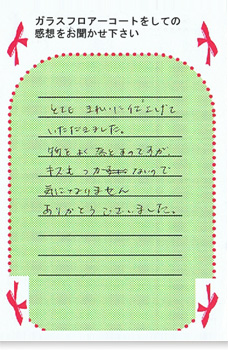 ガラスフロアーコートをしての
感想をお聞かせ下さい
とても きれいに仕上げて
いただきました。
物をよく落とすのですが
キズも つかないので
気になりません
ありがとうございました。